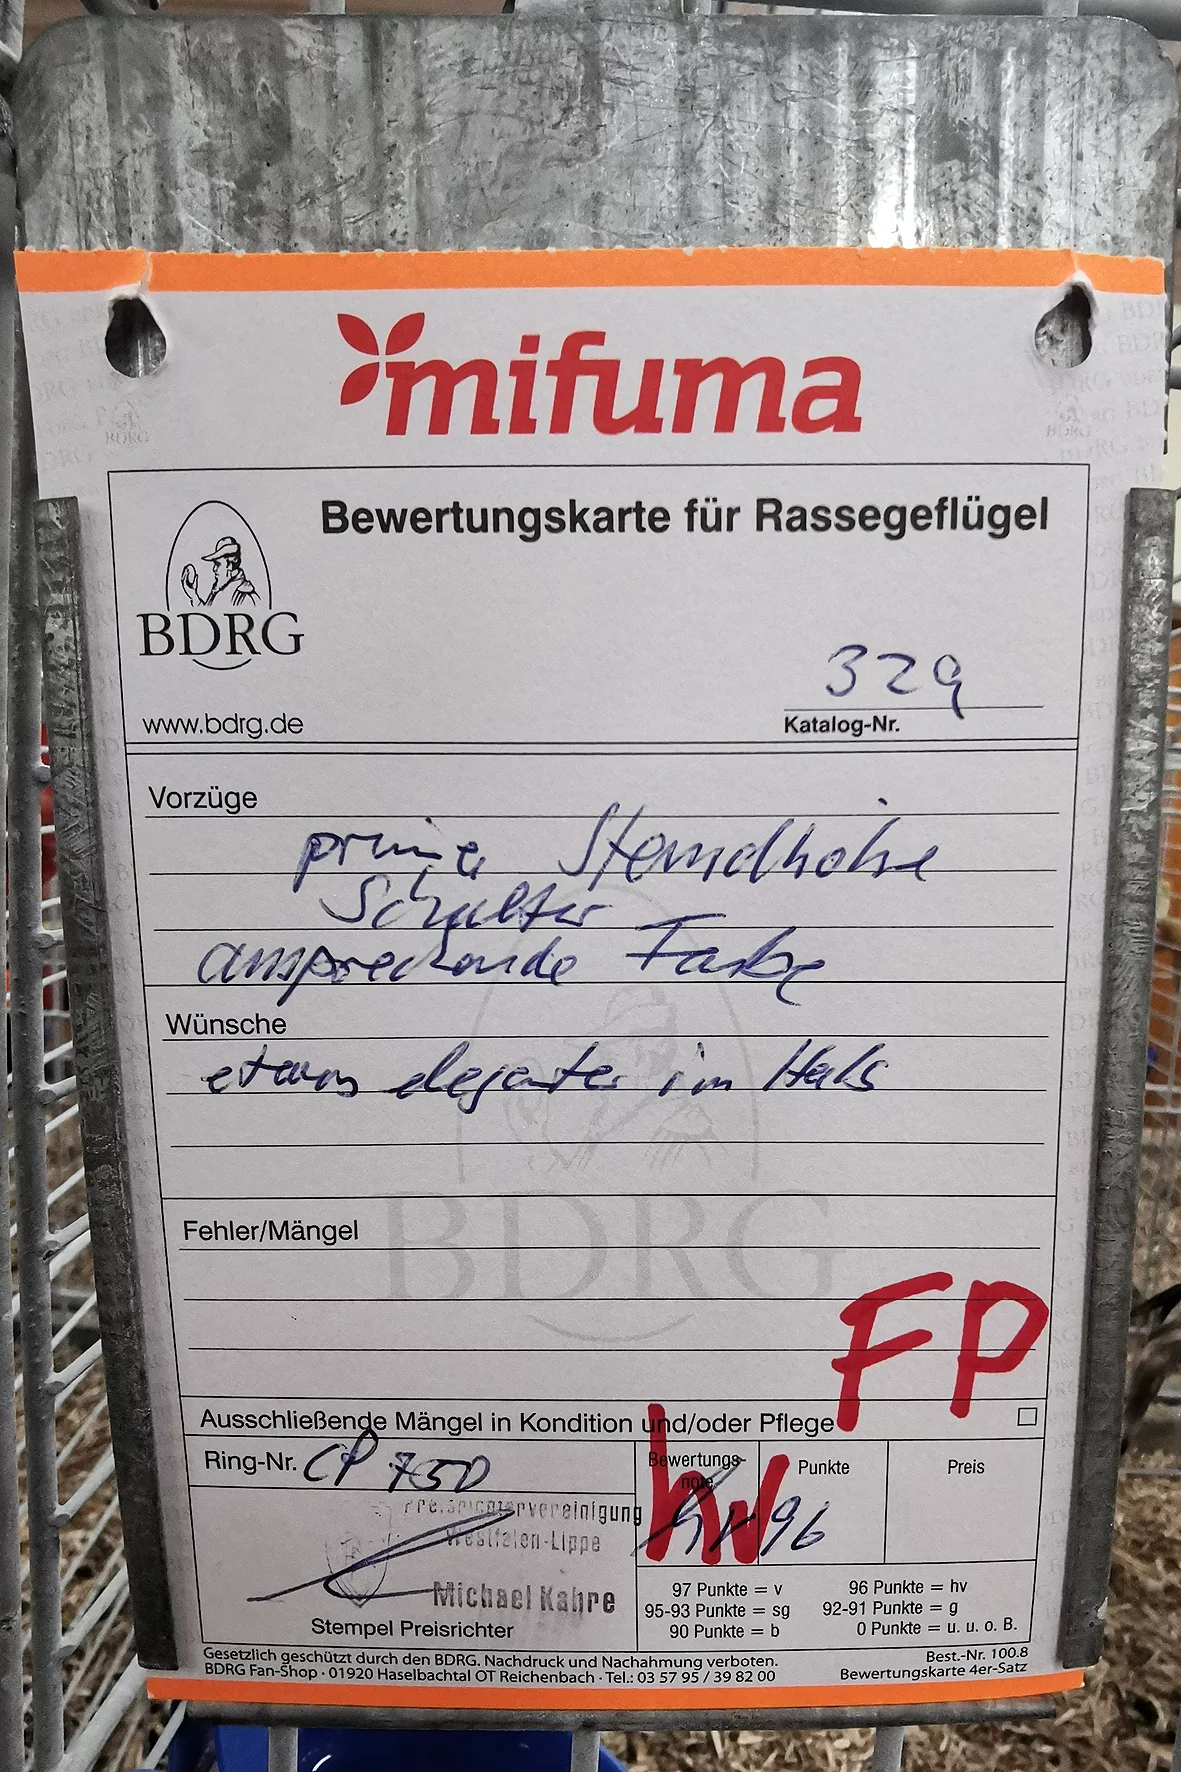 mifuma
Bewertungskarte für Rassegeflügel
BDRG
www.bdrg.de
329
Katalog-Nr.
Vorzüge
prima Standhöhe
Schulter
ansprechende Farbe
Wünsche
etwas eleganter im Hals
BDRG
Fehler/Mängel
FP
Ausschließende Mängel in Kondition und/oder Pflege
Ring-Nr. CP 750
Bewertungs-
note
hv
hv
Punkte
96
Preis
Preisrichtervereinigung
Westfalen-Lippe
Michael Kahre
Stempel Preisrichter
97 Punkte = v 96 Punkte = hv
95-93 Punkte = sg 92-91 Punkte = g
90 Punkte = b 0 Punkte = u. u. o. B.
Gesetzlich geschützt durch den BDRG. Nachdruck und Nachahmung verboten. Best.-Nr. 100.8
BDRG Fan-Shop · 01920 Haselbachtal OT Reichenbach · Tel.: 03 57 95 / 39 82 00 Bewertungskarte 4er-Satz